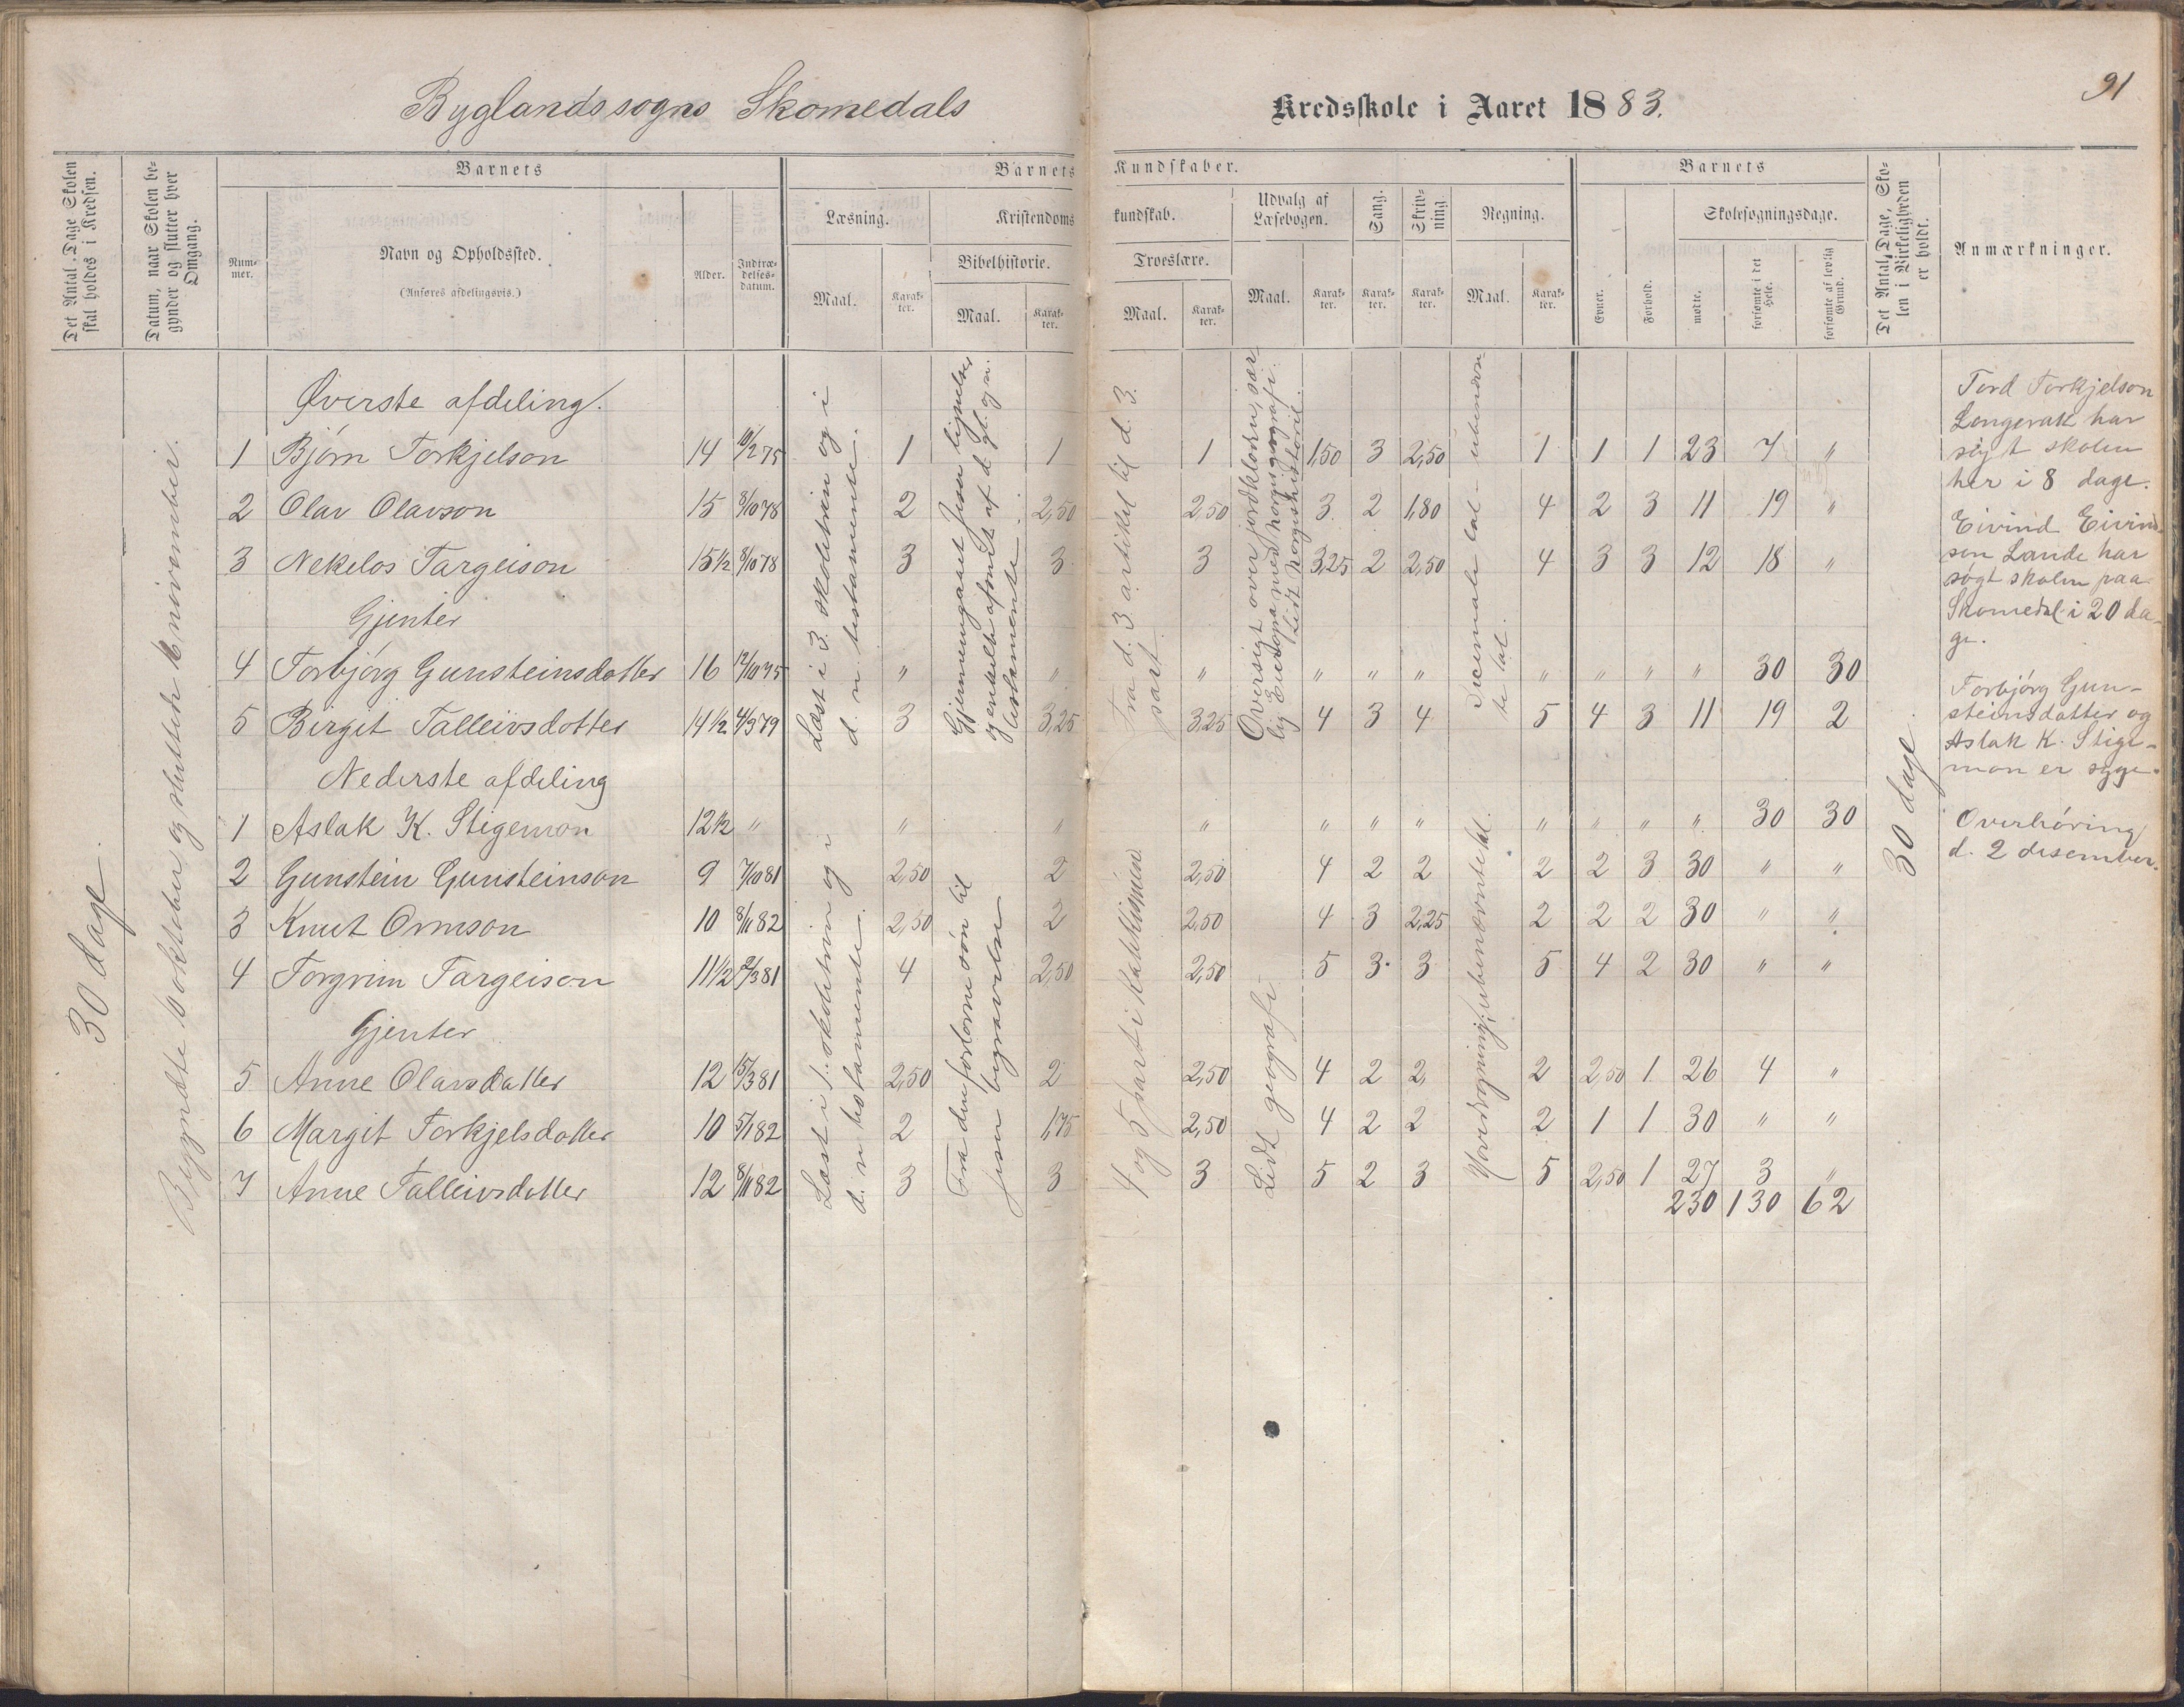 Byglandssogns Skomedals
Kredsskole i Aaret 1883.
91
Det Antal Dage Skolen skal holdes i Kredsen.
Datum, naar Skolen begynder og slutter hver Omgang.
Barnets
Nummer.
Navn og Opholdssted.
(Anføres afdelingsvis.)
Alder.
Indtrædelsesdatum.
Barnets Kundskaber.
Læsning.
Maal.
Karakter.
Kristendomskundskab.
Bibelhistorie.
Maal.
Karakter.
Troeslære.
Maal.
Karakter.
Udvalg af Læsebogen.
Maal.
Karakter.
Sang.
Karakter.
Skrivning.
Karakter.
Regning.
Maal.
Karakter.
Barnets
Evner.
Forhold.
Skolesøgningsdage.
mødte.
forsømte i det Hele.
forsømte af lovlig Grund.
Det Antal Dage, Skolen i Virkeligheden er holdt.
Anmærkninger.
30 dage.
Begyndte 6 oktober og sluttede 6 november.
Øverste afdeling.
1 Bjørn Torkjelson 14 10/2 75 1 1 1 1,50 3 2,50 1 1 1 23 7 "
2 Olav Olavson 15 8/10 78 2 2,50 2,50 3 2 1,80 4 2 3 11 19 "
3 Nekelos Targeison 15 1/2 8/10 78 3 3 3 3,25 2 2,50 4 3 3 12 18 "
Gjenter
4 Torbjørg Gunsteinsdotter 16 12/10 75 " " " " " " " " " " 30 30
5 Birgit Talleivsdotter 14 1/2 4/3 79 3 3,25 3,25 4 3 4 5 4 3 11 19 2
Nederste afdeling
1 Aslak K. Stigemon 12 1/2 " " " " " " " " " " " 30 30
2 Gunstein Gunsteinson 9 7/10 81 2,50 2 2,50 4 2 2 2 2 3 30 " "
3 Knut Ormson 10 8/11 82 2,50 2 2,50 4 3 2,25 2 2 2 30 " "
4 Torgrim Targeison 11 1/2 2/3 81 4 2,50 2,50 5 3 3 5 4 2 30 " "
Gjenter
5 Anne Olavsdatter 12 15/3 81 2,50 2 2,50 4 2 2 2 2,50 1 26 4 "
6 Margit Torkjelsdotter 10 5/1 82 2 1,75 2,50 4 2 2 2 1 1 30 " "
7 Anne Talleivsdotter 12 8/11 82 3 3 3 5 2 3 5 2,50 1 27 3 "
230 130 62
Læst i 3. skoletrin og i
d. n. testamente.
Gjennemgaaet Jesu lignelser
og enkelte afsnit af d. gl. og n.
testamente.
Fra d. 3 artikel til d. 3.
part.
Oversigt over jordkloden, sær
lig Europa med Norges geografi.
Lidt Norgeshistorie.
Decimale tal - ubenævn
te tal.
Læst i 1. skoletrin og i
d. n. testamente.
Fra den fortorne søn til
Jesu begravelse
4 og 5 part i Katekismen.
Lidt geografi.
Hovedregning; ubenævnte tal.
30 dage.
Tord Torkjelson
Longerak har
søgt skolen
her i 8 dage.
Eivind Eivind-
son Lande har
søgt skolen paa
Skomedal i 20 da-
ge.
Torbjørg Gun-
steinsdatter og
Aslak K. Stige-
mon er syge.
Overhøring
d. 2 desember.